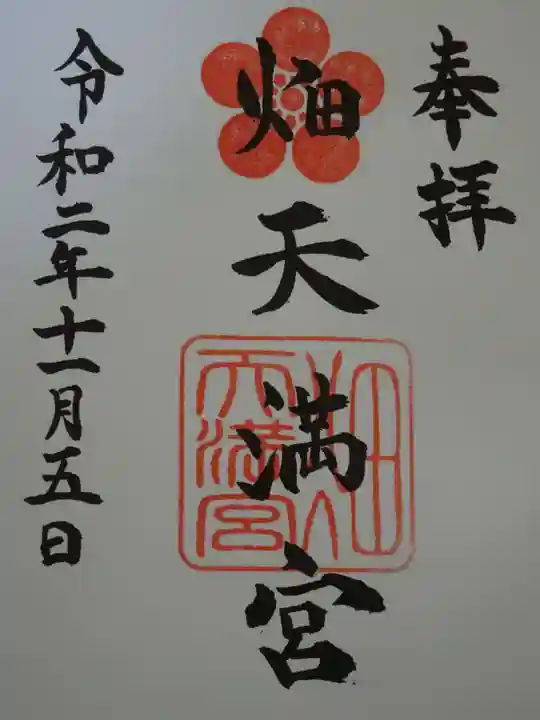 奉拝
畑天満宮
畑天満宮
令和二年十一月五日